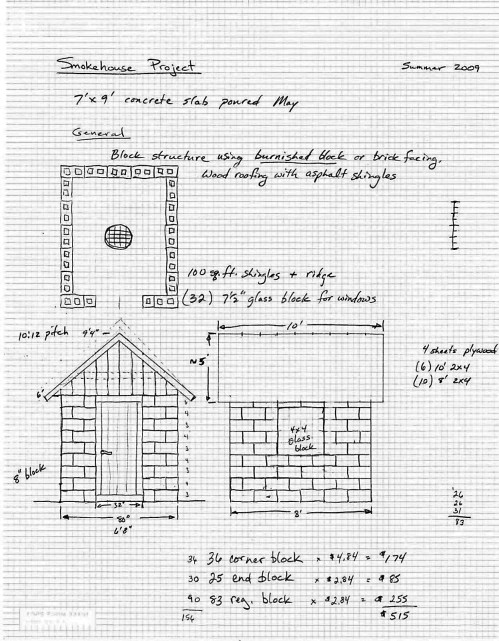 Smokehouse Project
Summer 2009
7'x9' concrete slab poured May
General
Block structure using burnished block or brick facing.
Wood roofing with asphalt shingles
100 sq. ft. shingles + ridge
(32) 7 1/2" glass block for windows
10:12 pitch
9'4"
10'
~5'
4 sheets plywood
(6) 10' 2x4
(10) 8' 2x4
6'
4x4
glass
block
8" block
32"
80"
6'8"
8'
26
26
31
83
36 corner block x $4.84 = $174
30 25 end block x $2.84 = $85
90 83 reg. block x $2.84 = $255
154
$515